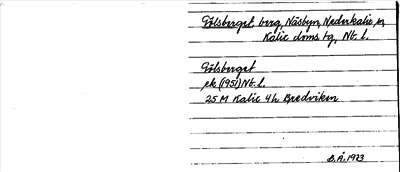 Gölsberget berg, Näsbyn, Nederkalix sn
Kalix doms tg, Nb. l.
Gölsberget
ek (1951) Nb. l.
25 M Kalix 4h Bredviken
B.Å. 1973